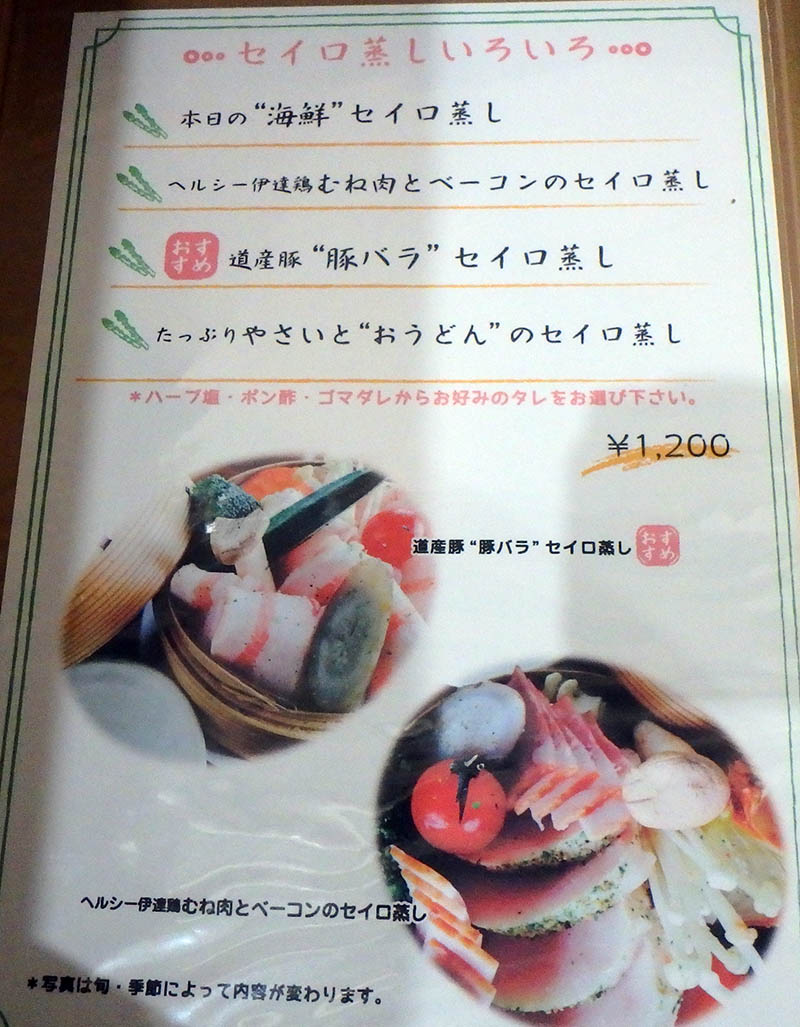 セイロ蒸しいろいろ
本日の“海鮮”セイロ蒸し
ヘルシー伊達鶏むね肉とベーコンのセイロ蒸し
おすすめ 道産豚“豚バラ”セイロ蒸し
たっぷりやさいと“おうどん”のセイロ蒸し
*ハーブ塩・ポン酢・ゴマダレからお好みのタレをお選び下さい。
¥1,200
道産豚“豚バラ”セイロ蒸し おすすめ
ヘルシー伊達鶏むね肉とベーコンのセイロ蒸し
*写真は旬・季節によって内容が変わります。